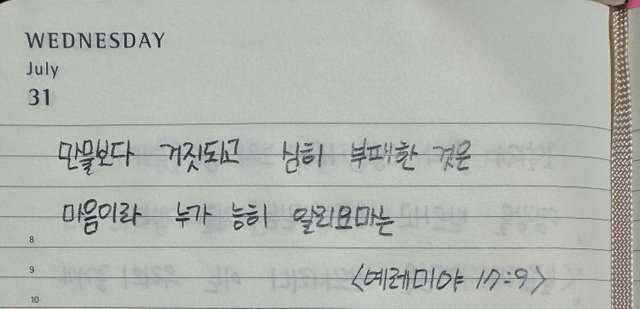 WEDNESDAY
July
31
만물보다 거짓되고 심히 부패한 것은
마음이라 누가 능히 알리요마는
8
9
<예레미야 17:9>
10